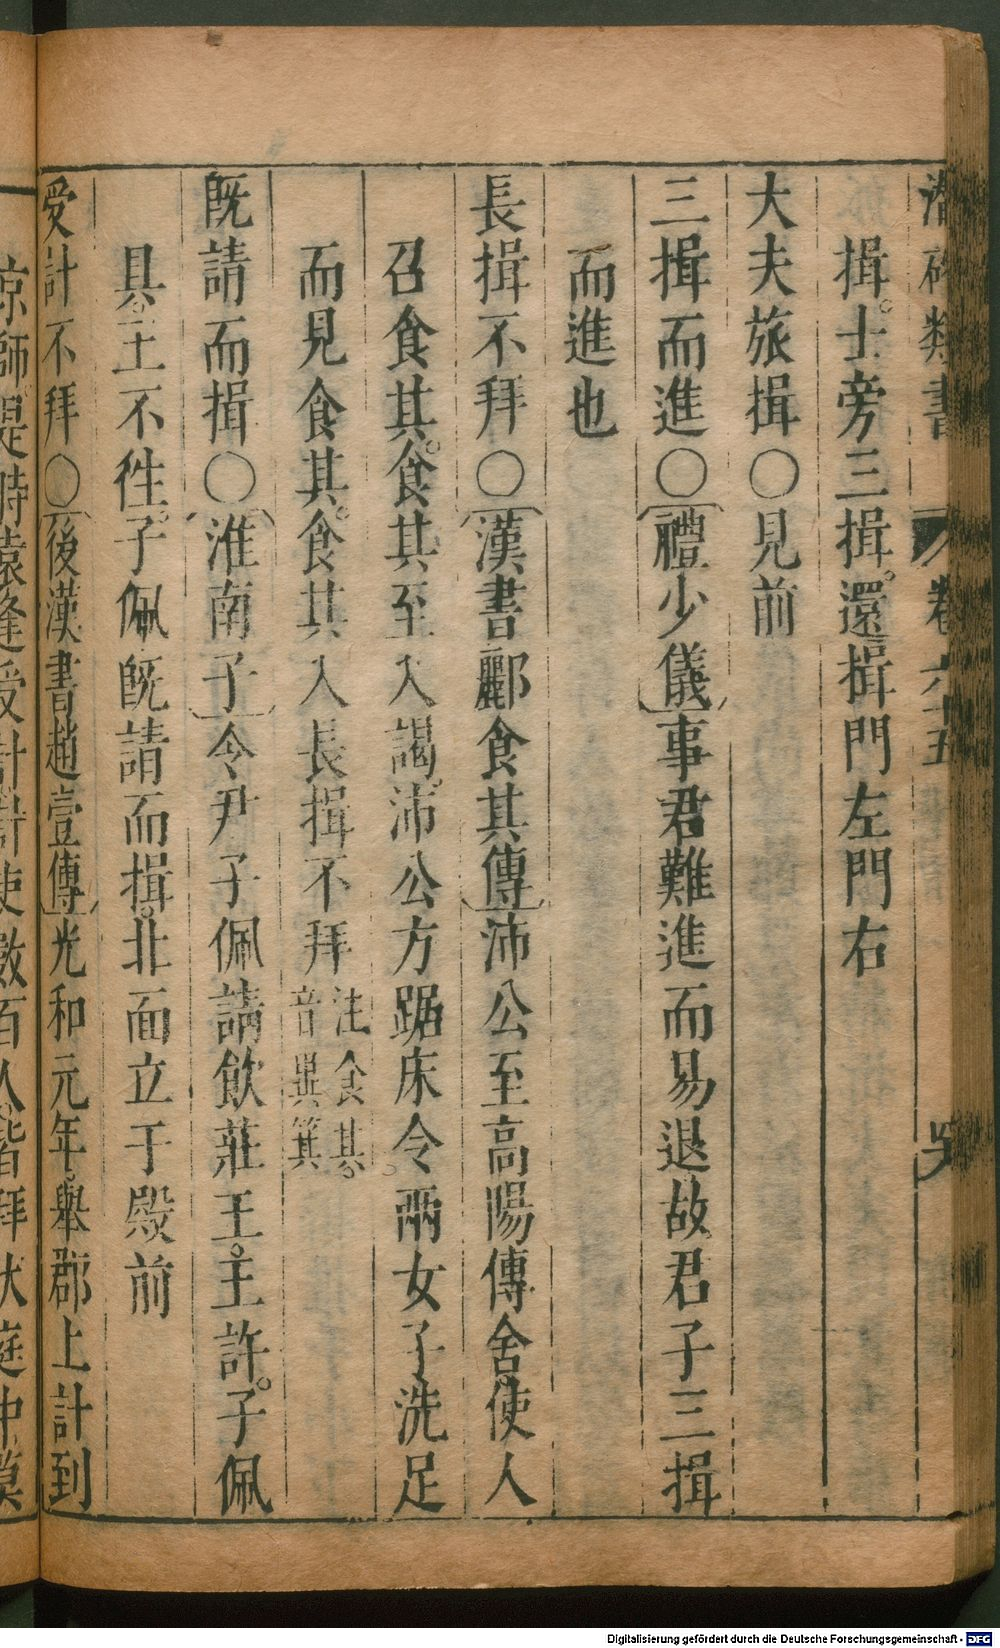 潛確類書 卷六十五
揖。士旁三揖。還揖門左門右
大夫旅揖○見前
三揖而進○禮少儀事君難進而易退故君子三揖
而進也
長揖不拜○漢書酈食其傳沛公至高陽傳舍。使人
召食其。食其至入謁。沛公方踞床令兩女子洗足
而見食其。食其入長揖不拜
注食其。
音異箕
既請而揖○淮南子令尹子佩請飲莊王。王許。子佩
具。王不徃。子佩既請而揖。北面立于殿前
受計不拜○後漢書趙壹傳光和元年。舉郡上計到
京師。是時袁逢受計計吏數百人皆拜伏庭中莫
Digitalisierung gefördert durch die Deutsche Forschungsgemeinschaft - DFG